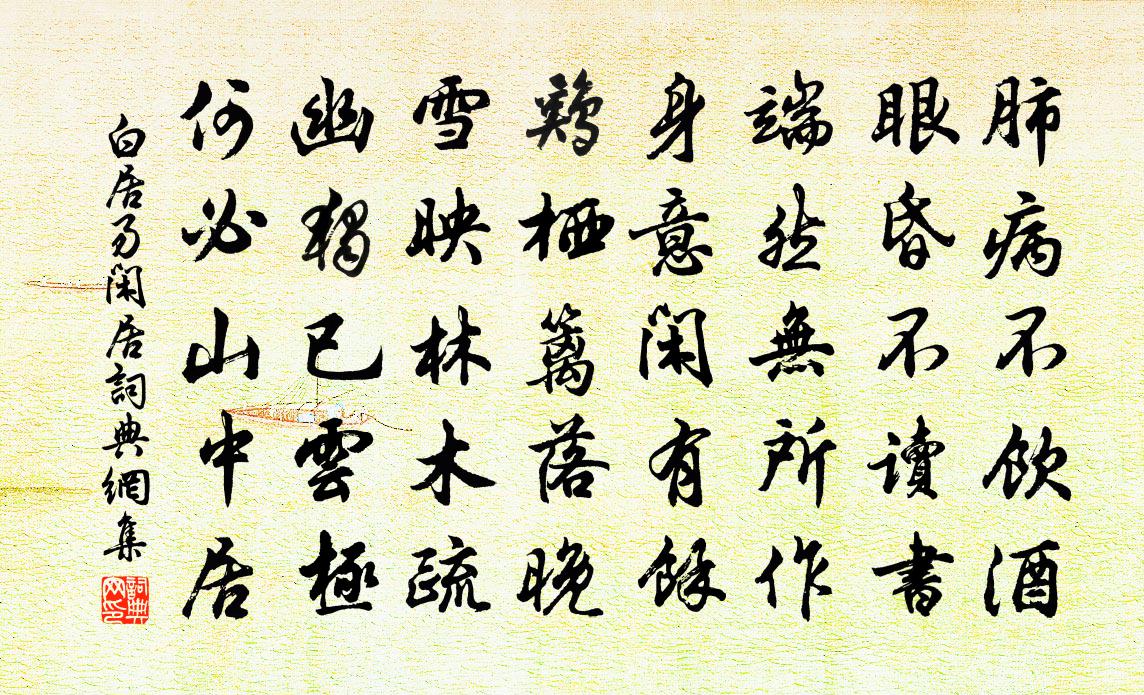 肺病不飲酒
眼昏不讀書
端然無所作
身意閑有餘
鷄栖籬落晚
雪映林木疏
幽獨已雲極
何必山中居
白居易閑居詞典網集
詞典